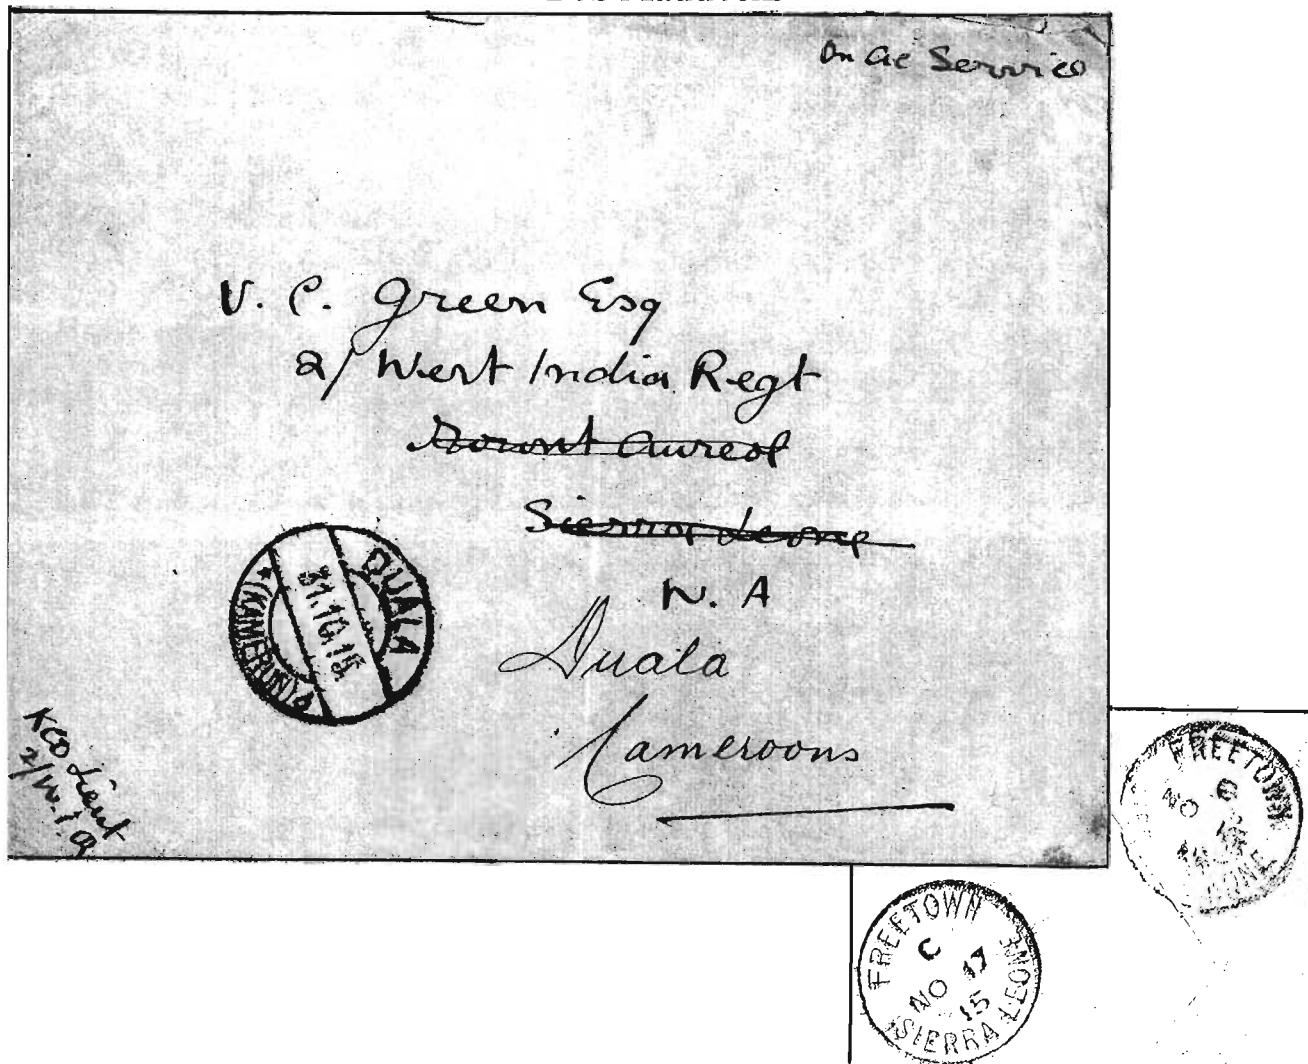 On Ac Service
V. C. Green Esq
2/ West India Regt
Mount Aureol
Sierra Leone
W. A
Duala
Cameroons
DUALA
31.10.15
* (KAMERUN) b
Lieut
2/W.I.R
FREETOWN
C
NO
FREETOWN
C
NO 17
15
SIERRA LEONE